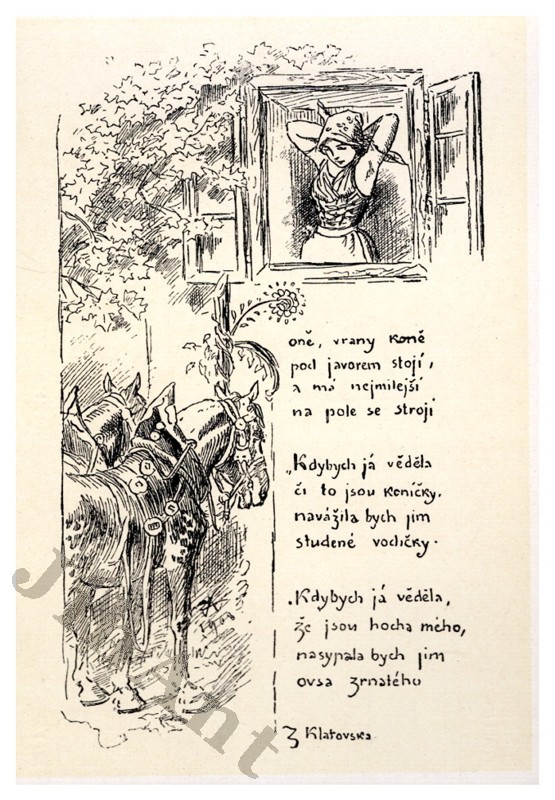 Koně, vrany koně
pod javorem stojí,
a má nejmilejší
na pole se strojí
„Kdybych já věděla
či to jsou koníčky,
navážila bych jim
studené vodičky.
„Kdybych já věděla,
že jsou hocha mého,
nasypala bych jim
ovsa zrnatého
Z Klatovska